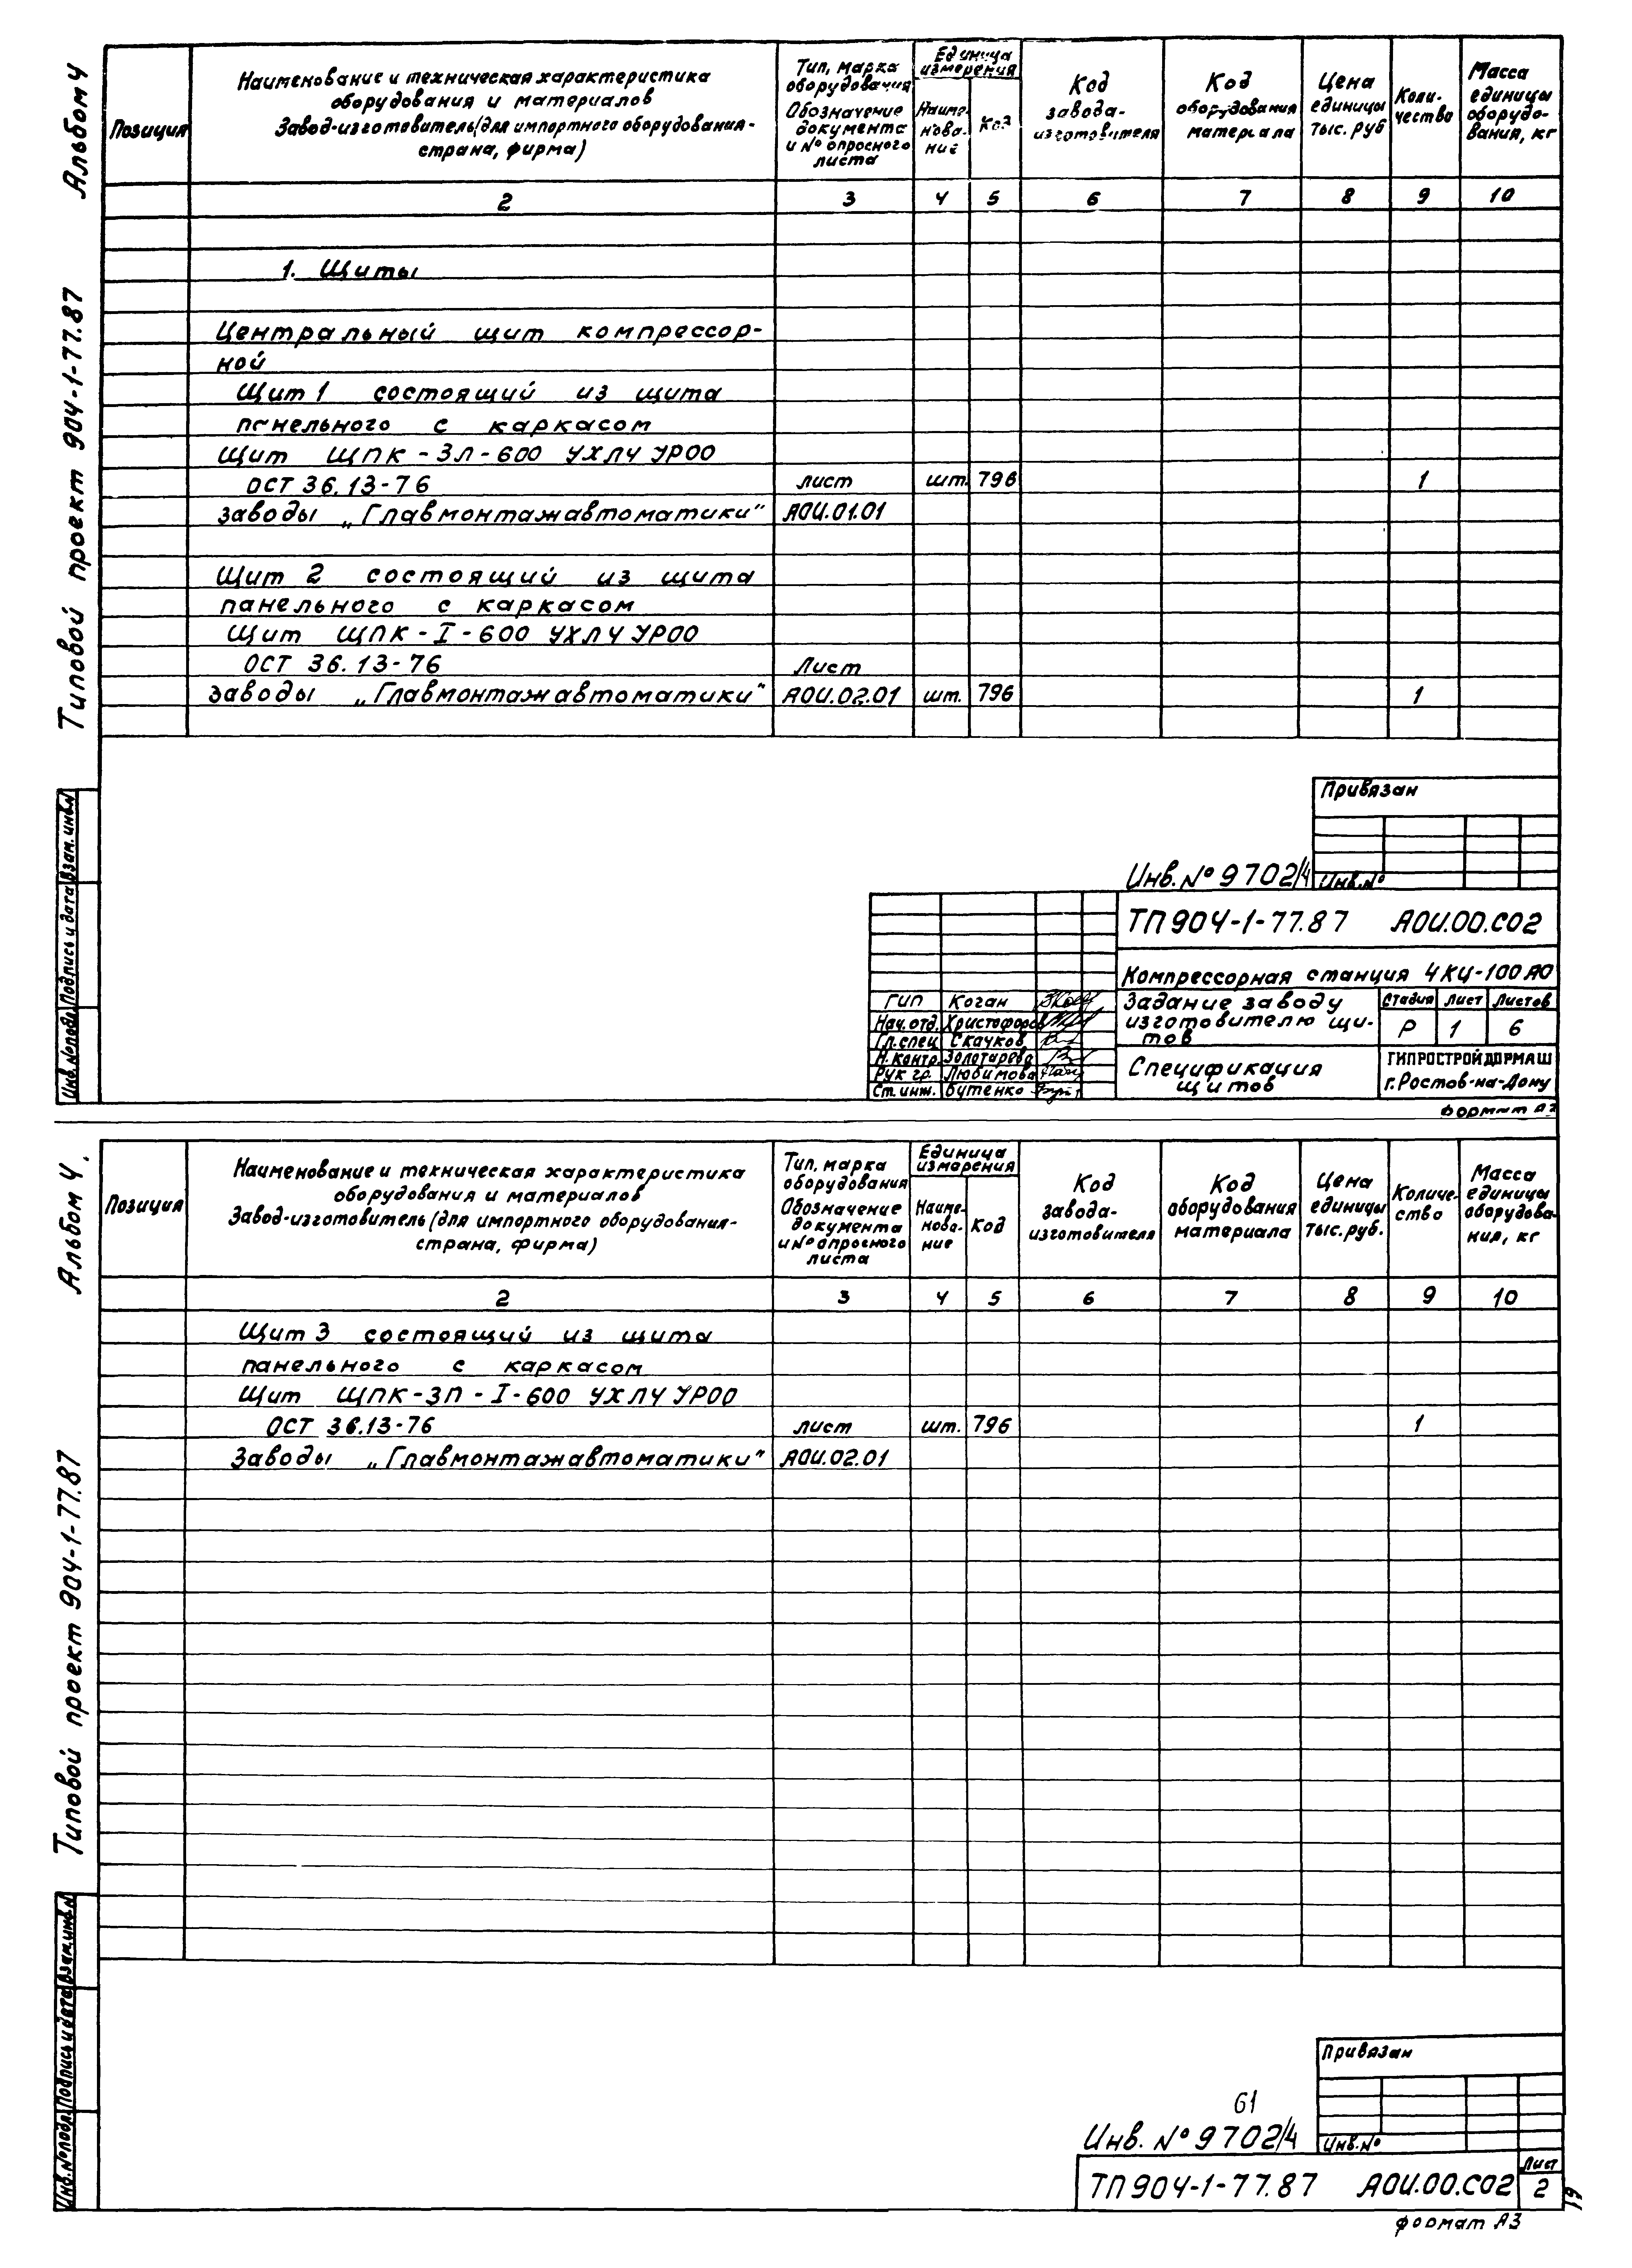 Альбом 4
Типовой проект 904-1-77.87
Позиция
Наименование и техническая характеристика
оборудования и материалов
Завод-изготовитель (для импортного оборудования-
страна, фирма)
Тип, марка
оборудования
Обозначение
документа
и № опросного
листа
Единица
измерения
Наиме-
нова-
ние
Код
Код
завода-
изготовителя
Код
оборудования
материала
Цена
единицы
тыс. руб
Коли-
чество
Масса
единицы
оборудо-
вания, кг
2 3 4 5 6 7 8 9 10
1. Щиты
Центральный щит компрессор-
ной
Щит 1 состоящий из щита
панельного с каркасом
Щит ЩПК-ЗЛ-600 УХЛ4 УР00
ОСТ 36.13-76 лист шт. 796 1
заводы „Главмонтажавтоматики" АОИ.01.01
Щит 2 состоящий из щита
панельного с каркасом
Щит ЩПК-I-600 УХЛ4 УР00
ОСТ 36.13-76 Лист
заводы „Главмонтажавтоматики" АОИ.02.01 шт. 796 1
Привязан
Инв. № 9702/4 Инв.№
ТП 904-1-77.87 АОИ.00.С02
Компрессорная станция 4КЦ-100АО
ГИП Коган
Нач.отд. Христофоров
Гл.спец Скачков
Н.контр. Золотарева
Рук гр. Любимова
Ст.инж. Бутенко
Задание заводу
изготовителю щи-
тов
Стадия Лист Листов
Р 1 6
Спецификация
щитов
ГИПРОСТРОЙДОРМАШ
г.Ростов-на-Дону
формат А3
Инв.№подл. Подпись и дата Взам. инв.№
Альбом 4.
Типовой проект 904-1-77.87
Позиция
Наименование и техническая характеристика
оборудования и материалов
Завод-изготовитель (для импортного оборудования-
страна, фирма)
Тип, марка
оборудования
Обозначение
документа
и № опросного
листа
Единица
измерения
Наиме-
нова-
ние
Код
Код
завода-
изготовителя
Код
оборудования
материала
Цена
единицы
тыс. руб.
Количе-
ство
Масса
единицы
оборудова-
ния, кг
2 3 4 5 6 7 8 9 10
Щит 3 состоящий из щита
панельного с каркасом
Щит ЩПК-ЗП-I-600 УХЛ4 УР00
ОСТ 36.13-76 лист шт. 796 1
Заводы „Главмонтажавтоматики" АОИ.02.01
Привязан
61
Инв. № 9702/4 Инв.№
ТП 904-1-77.87 АОИ.00.С02
Лист
2
61
формат А3
Инв.№подл. Подпись и дата Взам.инв.№